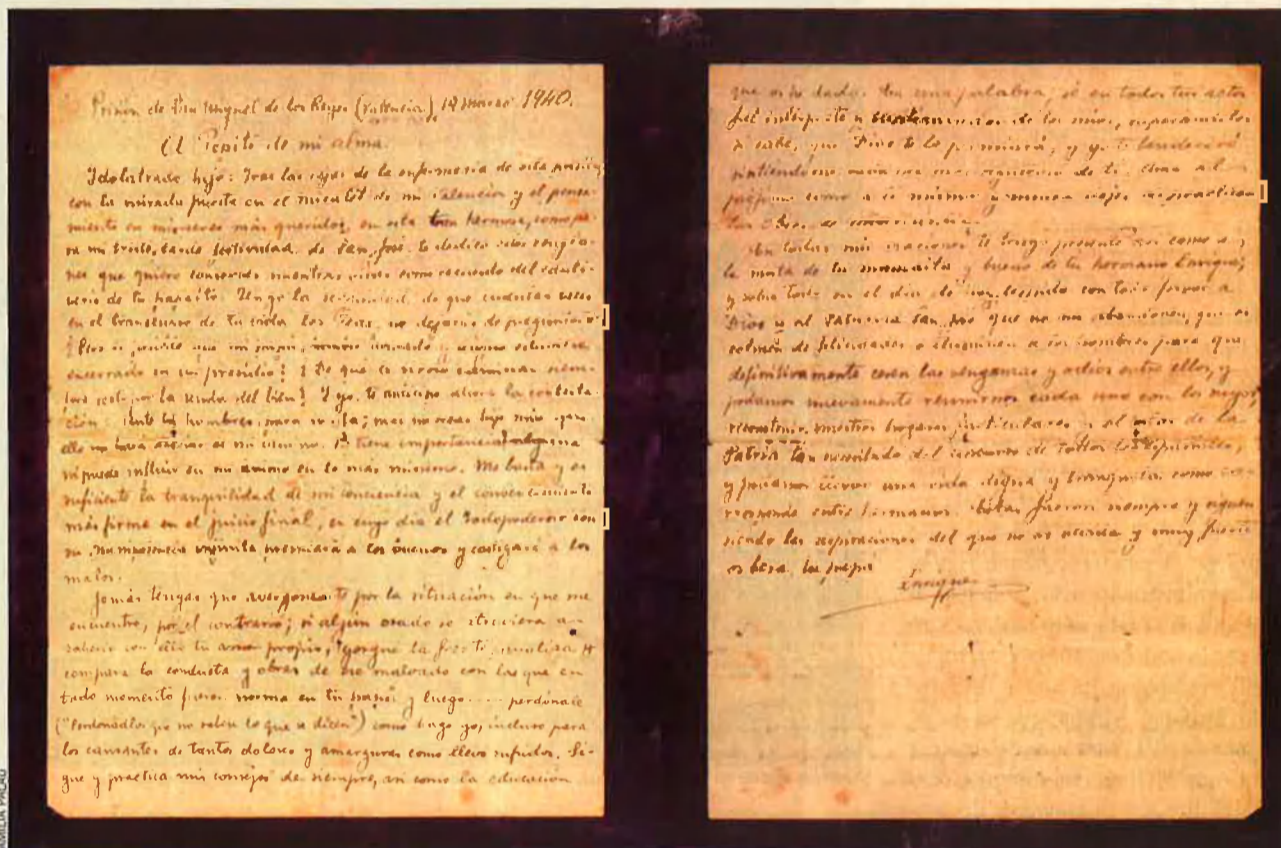 Prisión de San Miguel de los Reyes (Valencia) 19 Marzo 1940.
Al Pepito de mi alma.
Idolatrado hijo: Tras las rejas de la enfermería de esta prisión,
con la mirada puesta en el de mi Valencia y el pensa-
miento en mis seres más queridos, en esta tan hermosa, como pa-
ra mi triste, festividad de San José, te dedico estos renglo-
nes que quiero conserves mientras vivas como recuerdo del cauti-
verio de tu papaíto. Tengo la seguridad de que cuantas veces
en el transcurso de tu vida los leas, no dejarás de preguntarte
que mi papá, honrado y estuviera
encerrado en un presidio? ¿De que le sirvió caminar siem-
pre por la senda del bien? Y yo, te anticipo ahora la contesta-
ción: Ante los hombres, para ; mas no creas hijo mío que
ello en mi tiene importancia alguna
ni puede influir en mi ánimo en lo más mínimo. Me basta y es
suficiente la tranquilidad de mi conciencia y el convencimiento
más firme en el juicio final, en cuyo día el Todopoderoso con
su infinita premiará a los buenos y castigará a los
malos.
Jamás tengas que avergonzarte por la situación en que me
encuentro, por el contrario; si algún osado se atreviera a
con ello tu amor propio, la frente, analiza y
compara la conducta y obras de ese malvado con las que en
todo momento fueron norma en tu papá y luego.... perdónale
("Perdonadlos que no saben lo que se dicen") como hago yo, incluso para
los causantes de tantos dolores y amarguras como llevo sufridos. Si-
gue y practica mis consejos de siempre, así como la educación
que os he dado. En una palabra, sé en todos tus actos
fiel intérprete y continuador de los míos, superándolos
si cabe, que Dios te lo premiará, y yo te bendeciré
sintiéndome cada vez más orgulloso de ti. Ama al
prójimo como a ti mismo y nunca dejes de practicar
las obras de misericordia.
En todas mis oraciones te tengo presente así como a
la santa de tu mamaíta y bueno de tu hermano Enrique,
y sobre todo en el día de hoy, con todo fervor a
Dios y al Patriarca San José que no me abandonen, que os
colmen de felicidades e iluminen a los hombres para que
definitivamente cesen las venganzas y odios entre ellos, y
podamos nuevamente reunirnos cada uno con los suyos,
reconstruir nuestros hogares particulares y el de la
Patria tan necesitada del concurso de todos los españoles,
y podamos vivir una vida digna y tranquila como co-
rresponde entre hermanos. Estas fueron siempre y siguen
siendo las aspiraciones del que no os olvida y muy fuerte
os besa, tu papá
Enrique
FAMILIA PALAU